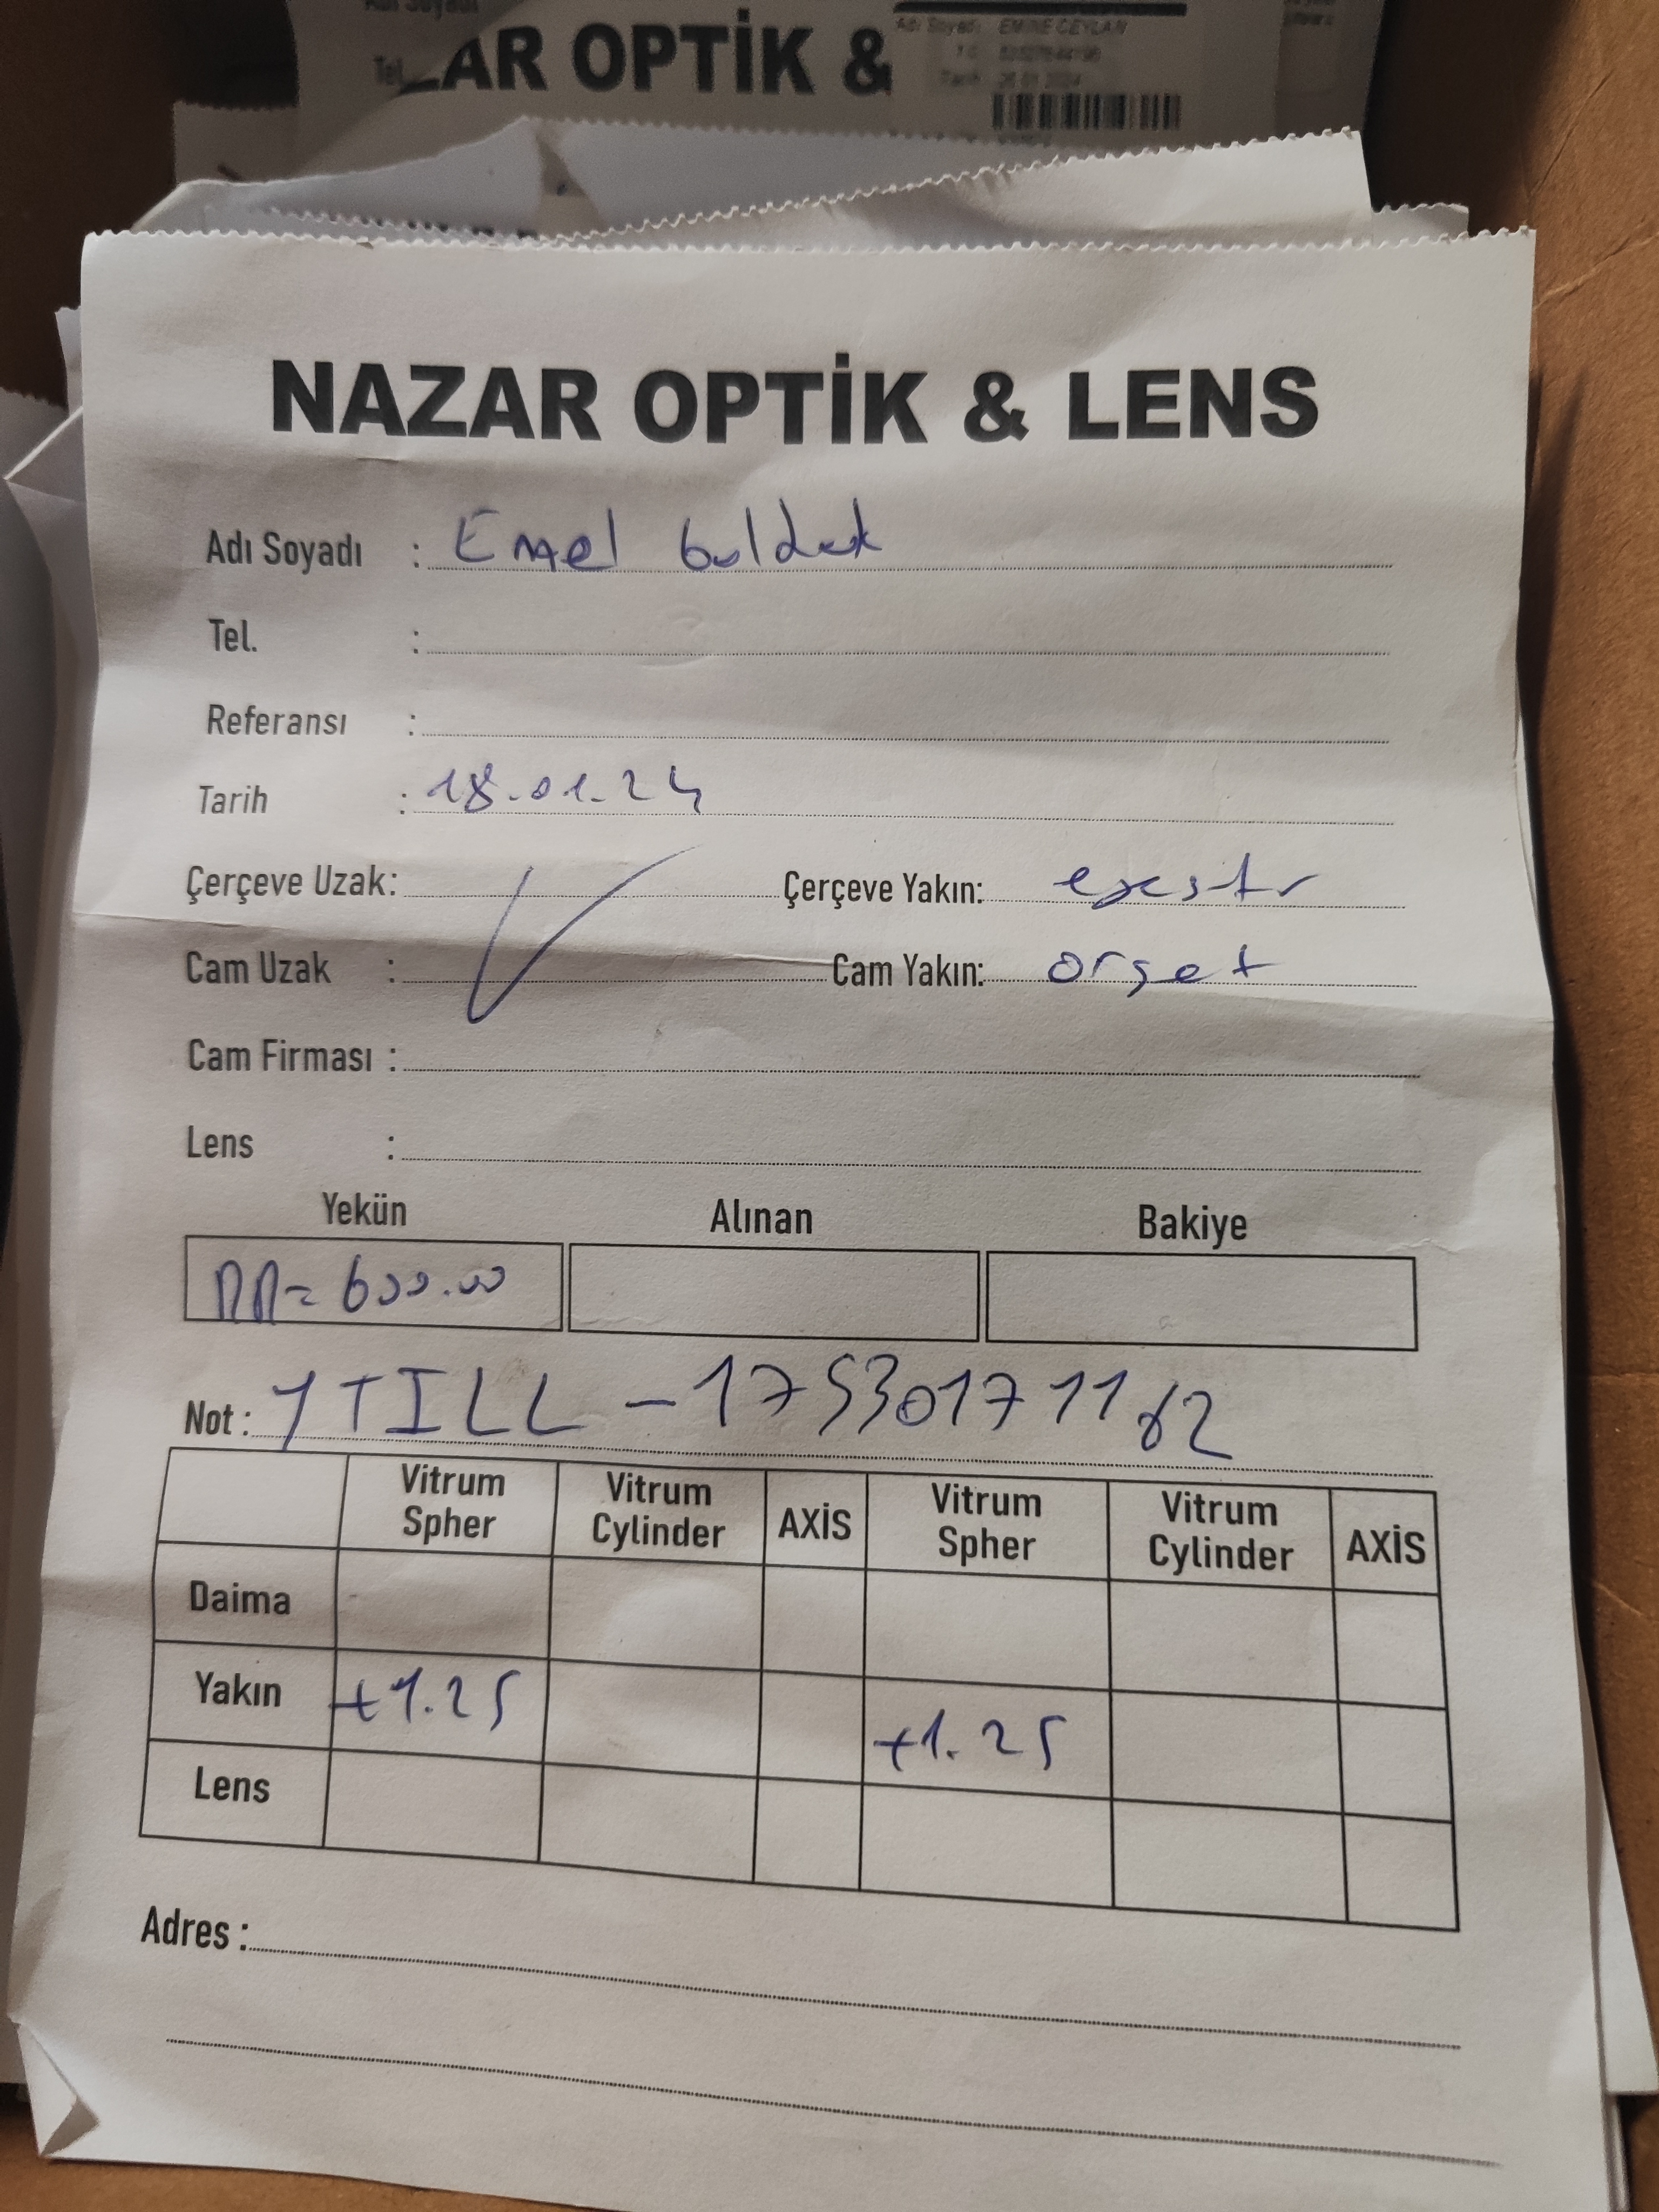 AR OPTİK &
Adı Soyadı EMİNE CEYLAN
Tel.
NAZAR OPTİK & LENS
Adı Soyadı : Emel
Tel. :
Referansı :
Tarih : 18.01.24
Çerçeve Uzak: Çerçeve Yakın:
Cam Uzak : Cam Yakın:
Cam Firması :
Lens :
Yekün Alınan Bakiye
= 600.00
Not: YTILL - 17530171162
Vitrum Spher Vitrum Cylinder AXİS Vitrum Spher Vitrum Cylinder AXİS
Daima
Yakın +1.25 +1.25
Lens
Adres :